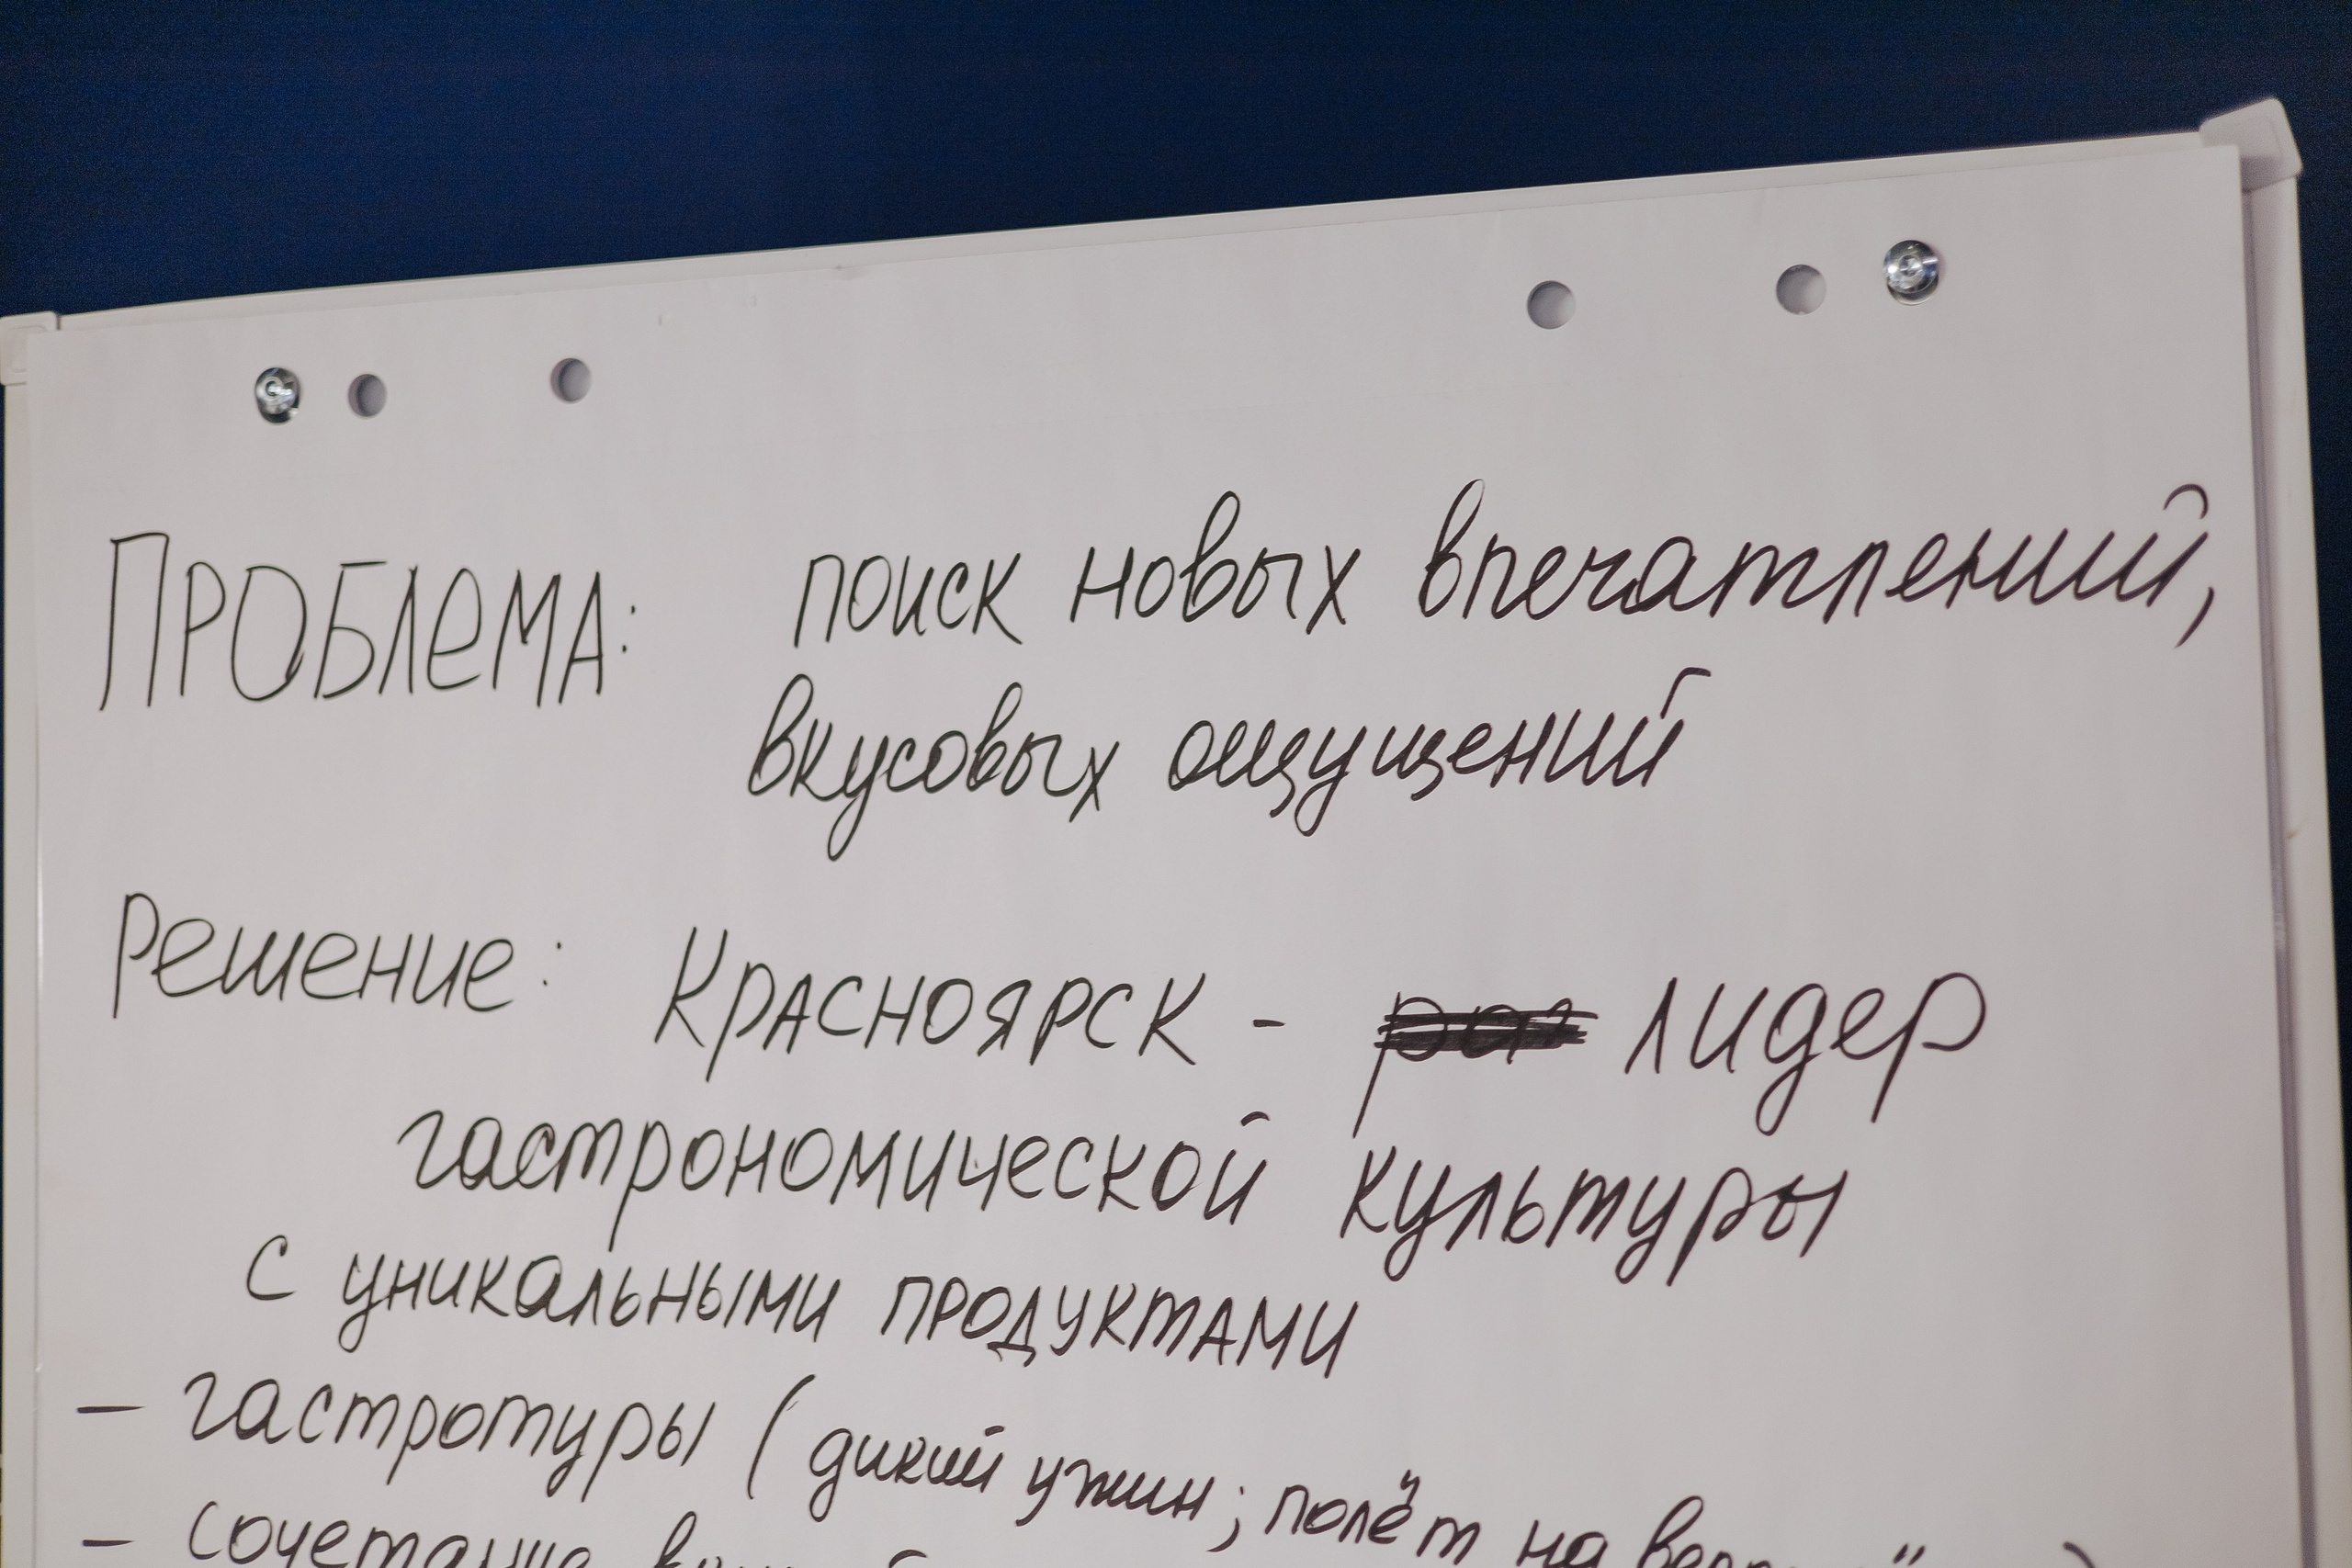 ПРОБЛЕМА: поиск новых впечатлений,
вкусовых ощущений
Решение: Красноярск - лидер
гастрономической культуры
с уникальными продуктами
- гастротуры (дикий ужин; полёт на
- сочетание